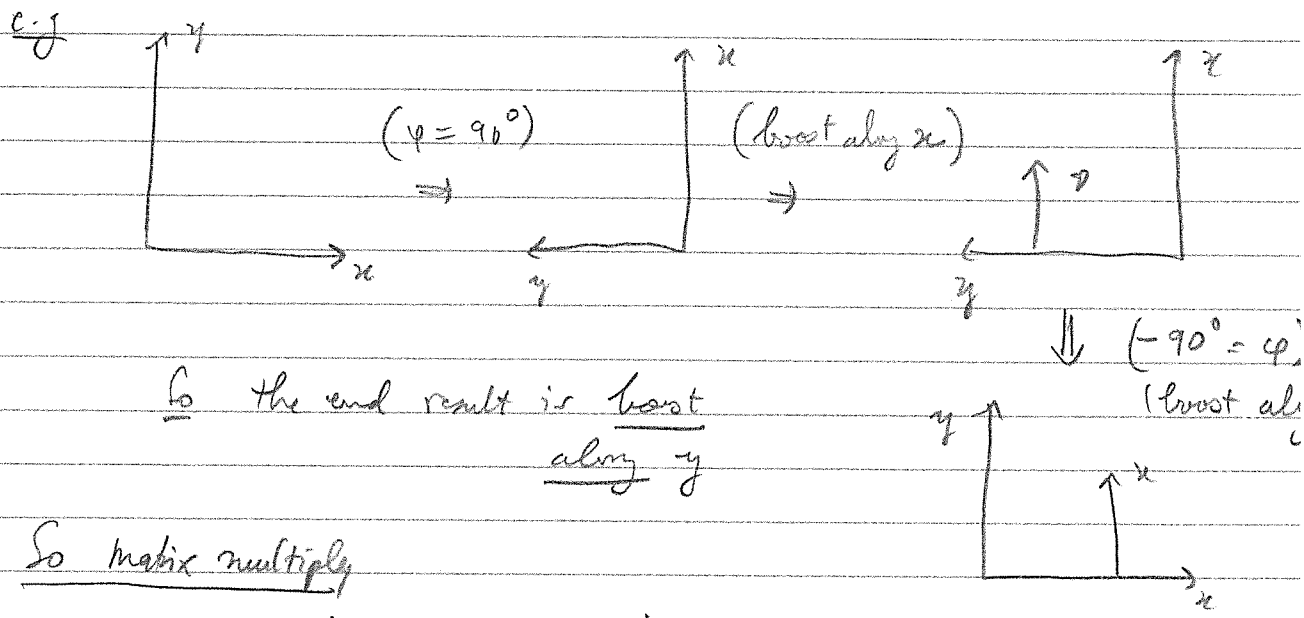 e.g
y
x
(φ = 90°)
⇒
x
y
(boost along x)
⇒
x
y
⇓ (-90° = φ)
(boost al
So the end result is boost
along y
y
x
x
So Matrix multiply